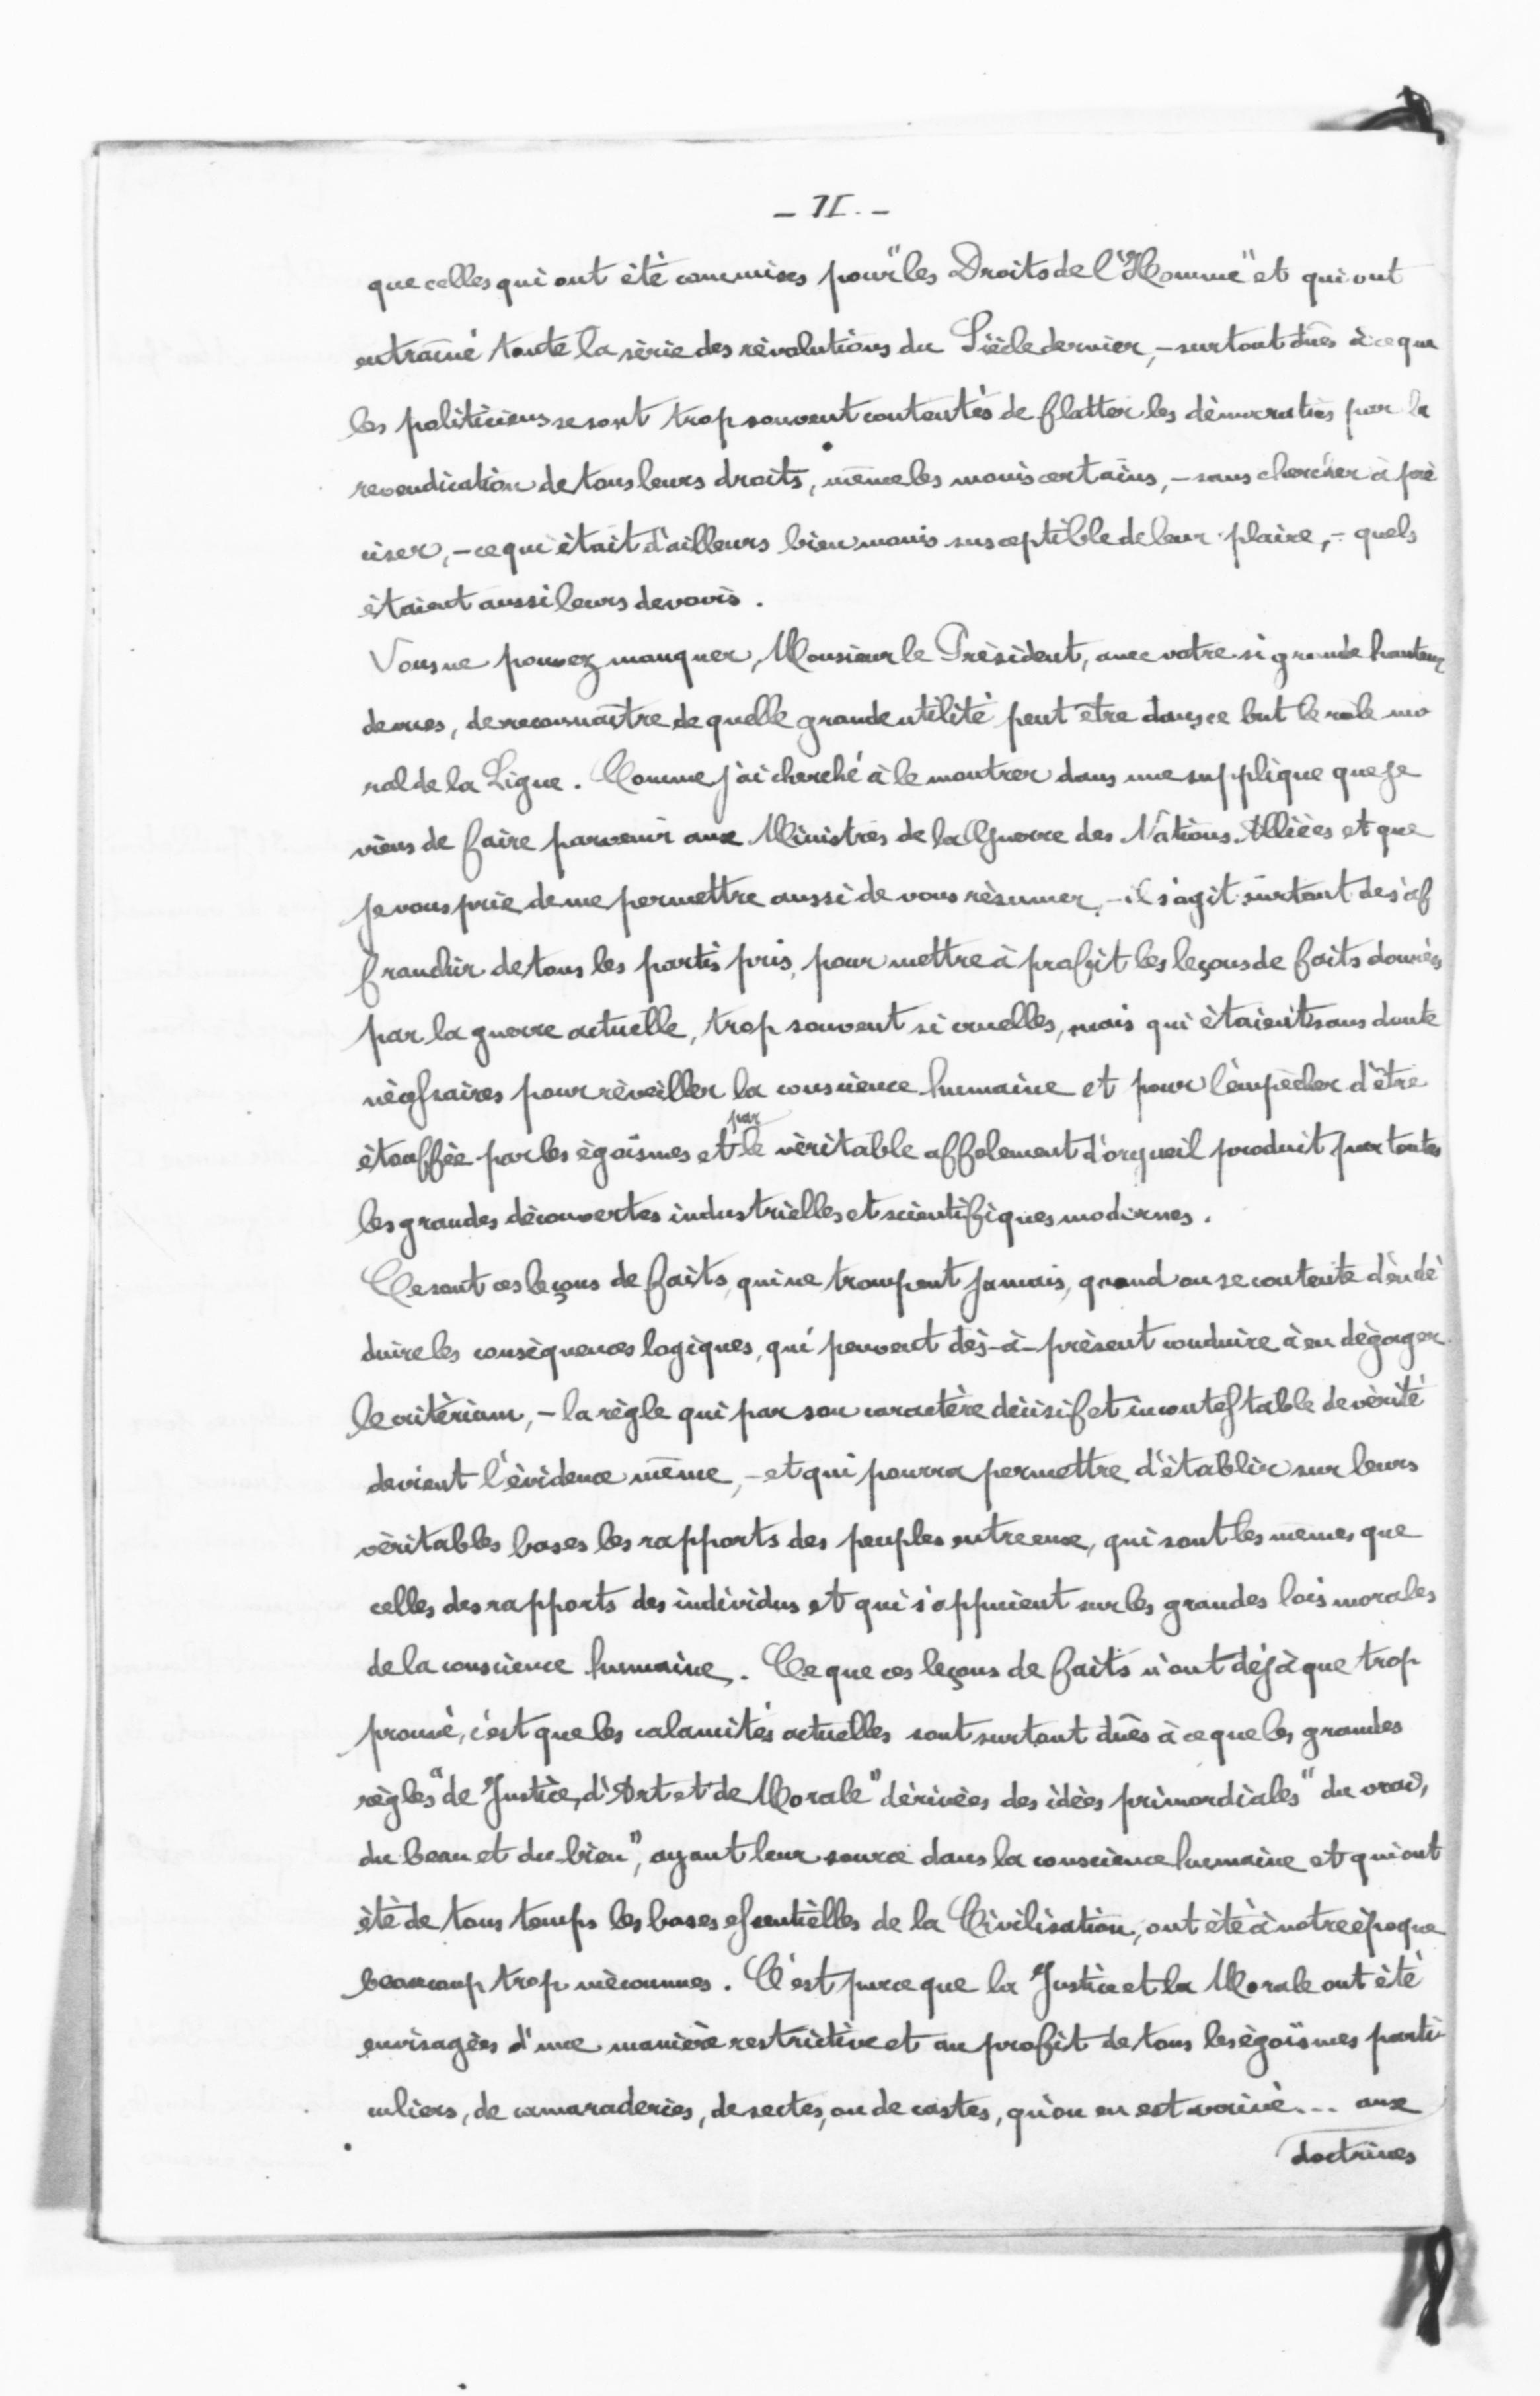 – II. –
que celles qui ont été commises pour "les Droits de l'Homme" et qui ont
entraîné toute la série des révolutions du Siècle dernier, – surtout dûes à ce que
les politiciens se sont trop souvent contentés de flatter les démocraties par la
revendication de tous leurs droits, même les moins certains, – sans chercher à pré
ciser, – ce qui était d'ailleurs bien moins susceptible de leur plaire, – quels
étaient aussi leurs devoirs.
Vous ne pouvez manquer, Monsieur le Président, avec votre si grande hauteur
de vues, de reconnaître de quelle grande utilité peut être dans ce but le rôle mo
ral de la Ligue. Comme j'ai cherché à le montrer dans une supplique que je
viens de faire parvenir aux Ministres de la Guerre des Nations Alliées et que
je vous prie de me permettre aussi de vous résumer, – il s'agit surtout de s'af
franchir de tous les partis pris, pour mettre à profit les leçons de faits données
par la guerre actuelle, trop souvent si cruelles, mais qui étaient sans doute
nécessaires pour réveiller la conscience humaine et pour l'empêcher d'être
étouffée par les égoïsmes et par le véritable affolement d'orgueil produit par toutes
les grandes découvertes industrielles et scientifiques modernes.
Ce sont ces leçons de faits, qui ne trompent jamais, quand on se contente d'en dé
duire les conséquences logiques, qui peuvent dès-à-présent conduire à en dégager
le critérium, – la règle qui par son caractère décisif et incontestable de vérité
devient l'évidence même, – et qui pourra permettre d'établir sur leurs
véritables bases les rapports des peuples entre eux, qui sont les mêmes que
celles des rapports des individus et qui s'appuient sur les grandes lois morales
de la conscience humaine. Ce que ces leçons de faits n'ont déjà que trop
prouvé, c'est que les calamités actuelles sont surtout dûes à ce que les grandes
règles "de Justice, d'Art et de Morale" dérivées des idées primordiales "du vrai,
du beau et du bien", ayant leur source dans la conscience humaine et qui ont
été de tous temps les bases essentielles de la Civilisation, ont été à notre époque
beaucoup trop méconnues. C'est parce que la Justice et la Morale ont été
envisagées d'une manière restrictive et au profit de tous les égoïsmes parti
culiers, de camaraderies, de sectes, ou de castes, qu'on en est arrivé... aux
doctrines